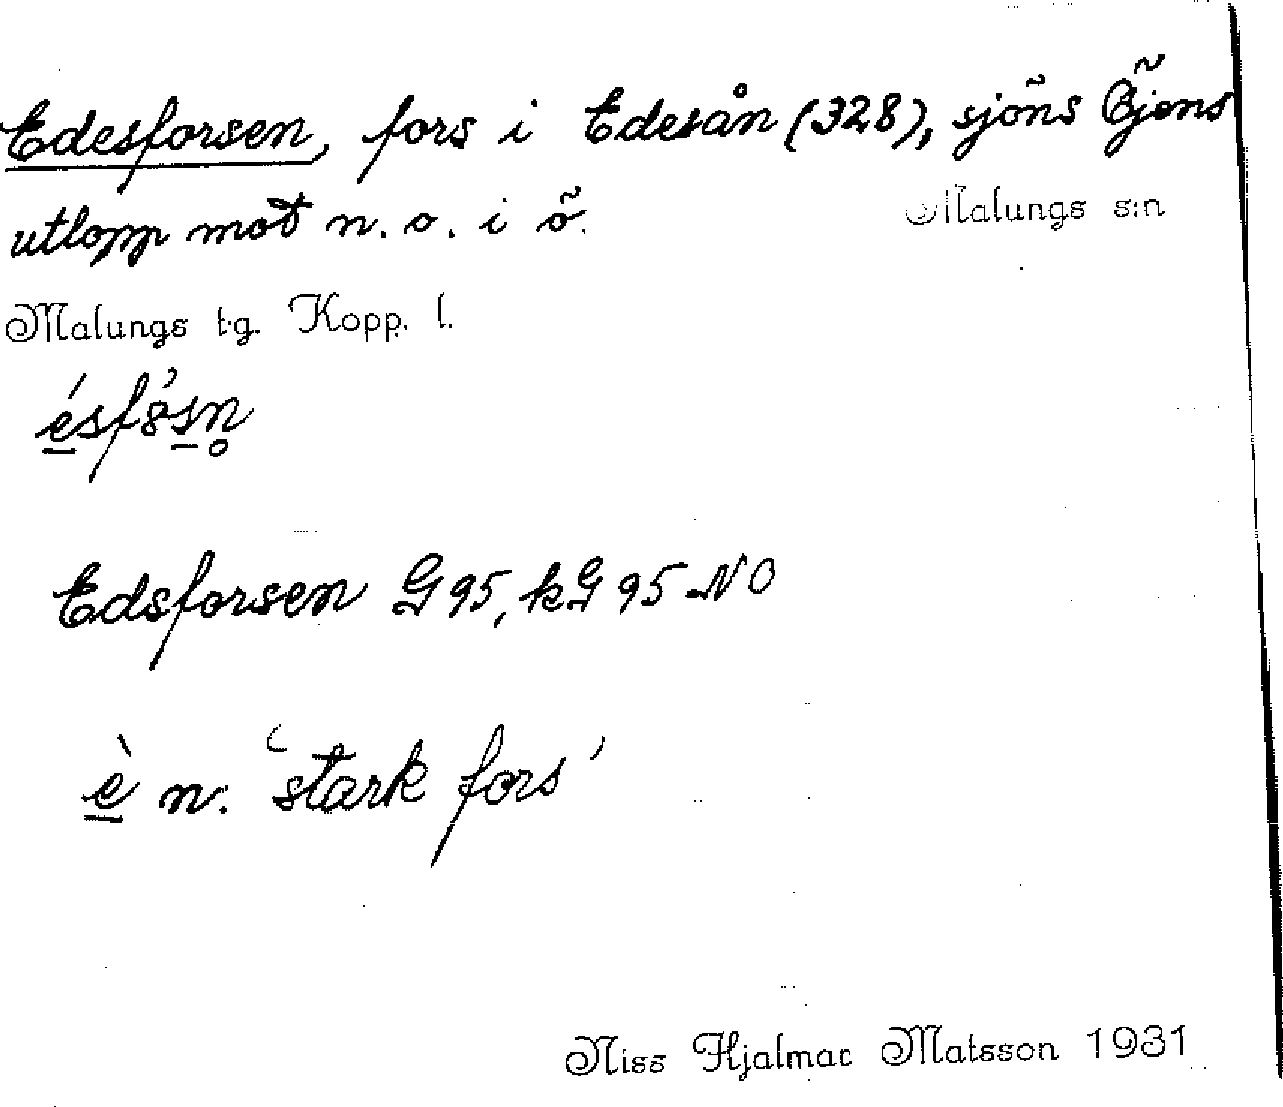 Edesforsen, fors i Edesån (328), sjöns Öjens
utlopp mot n. o. i ö. Malungs s:n
Malungs tg. Kopp. l.
Edsforsen G95, kG 95 NO
è n. 'stark fors'
Niss Hjalmar Matsson 1931